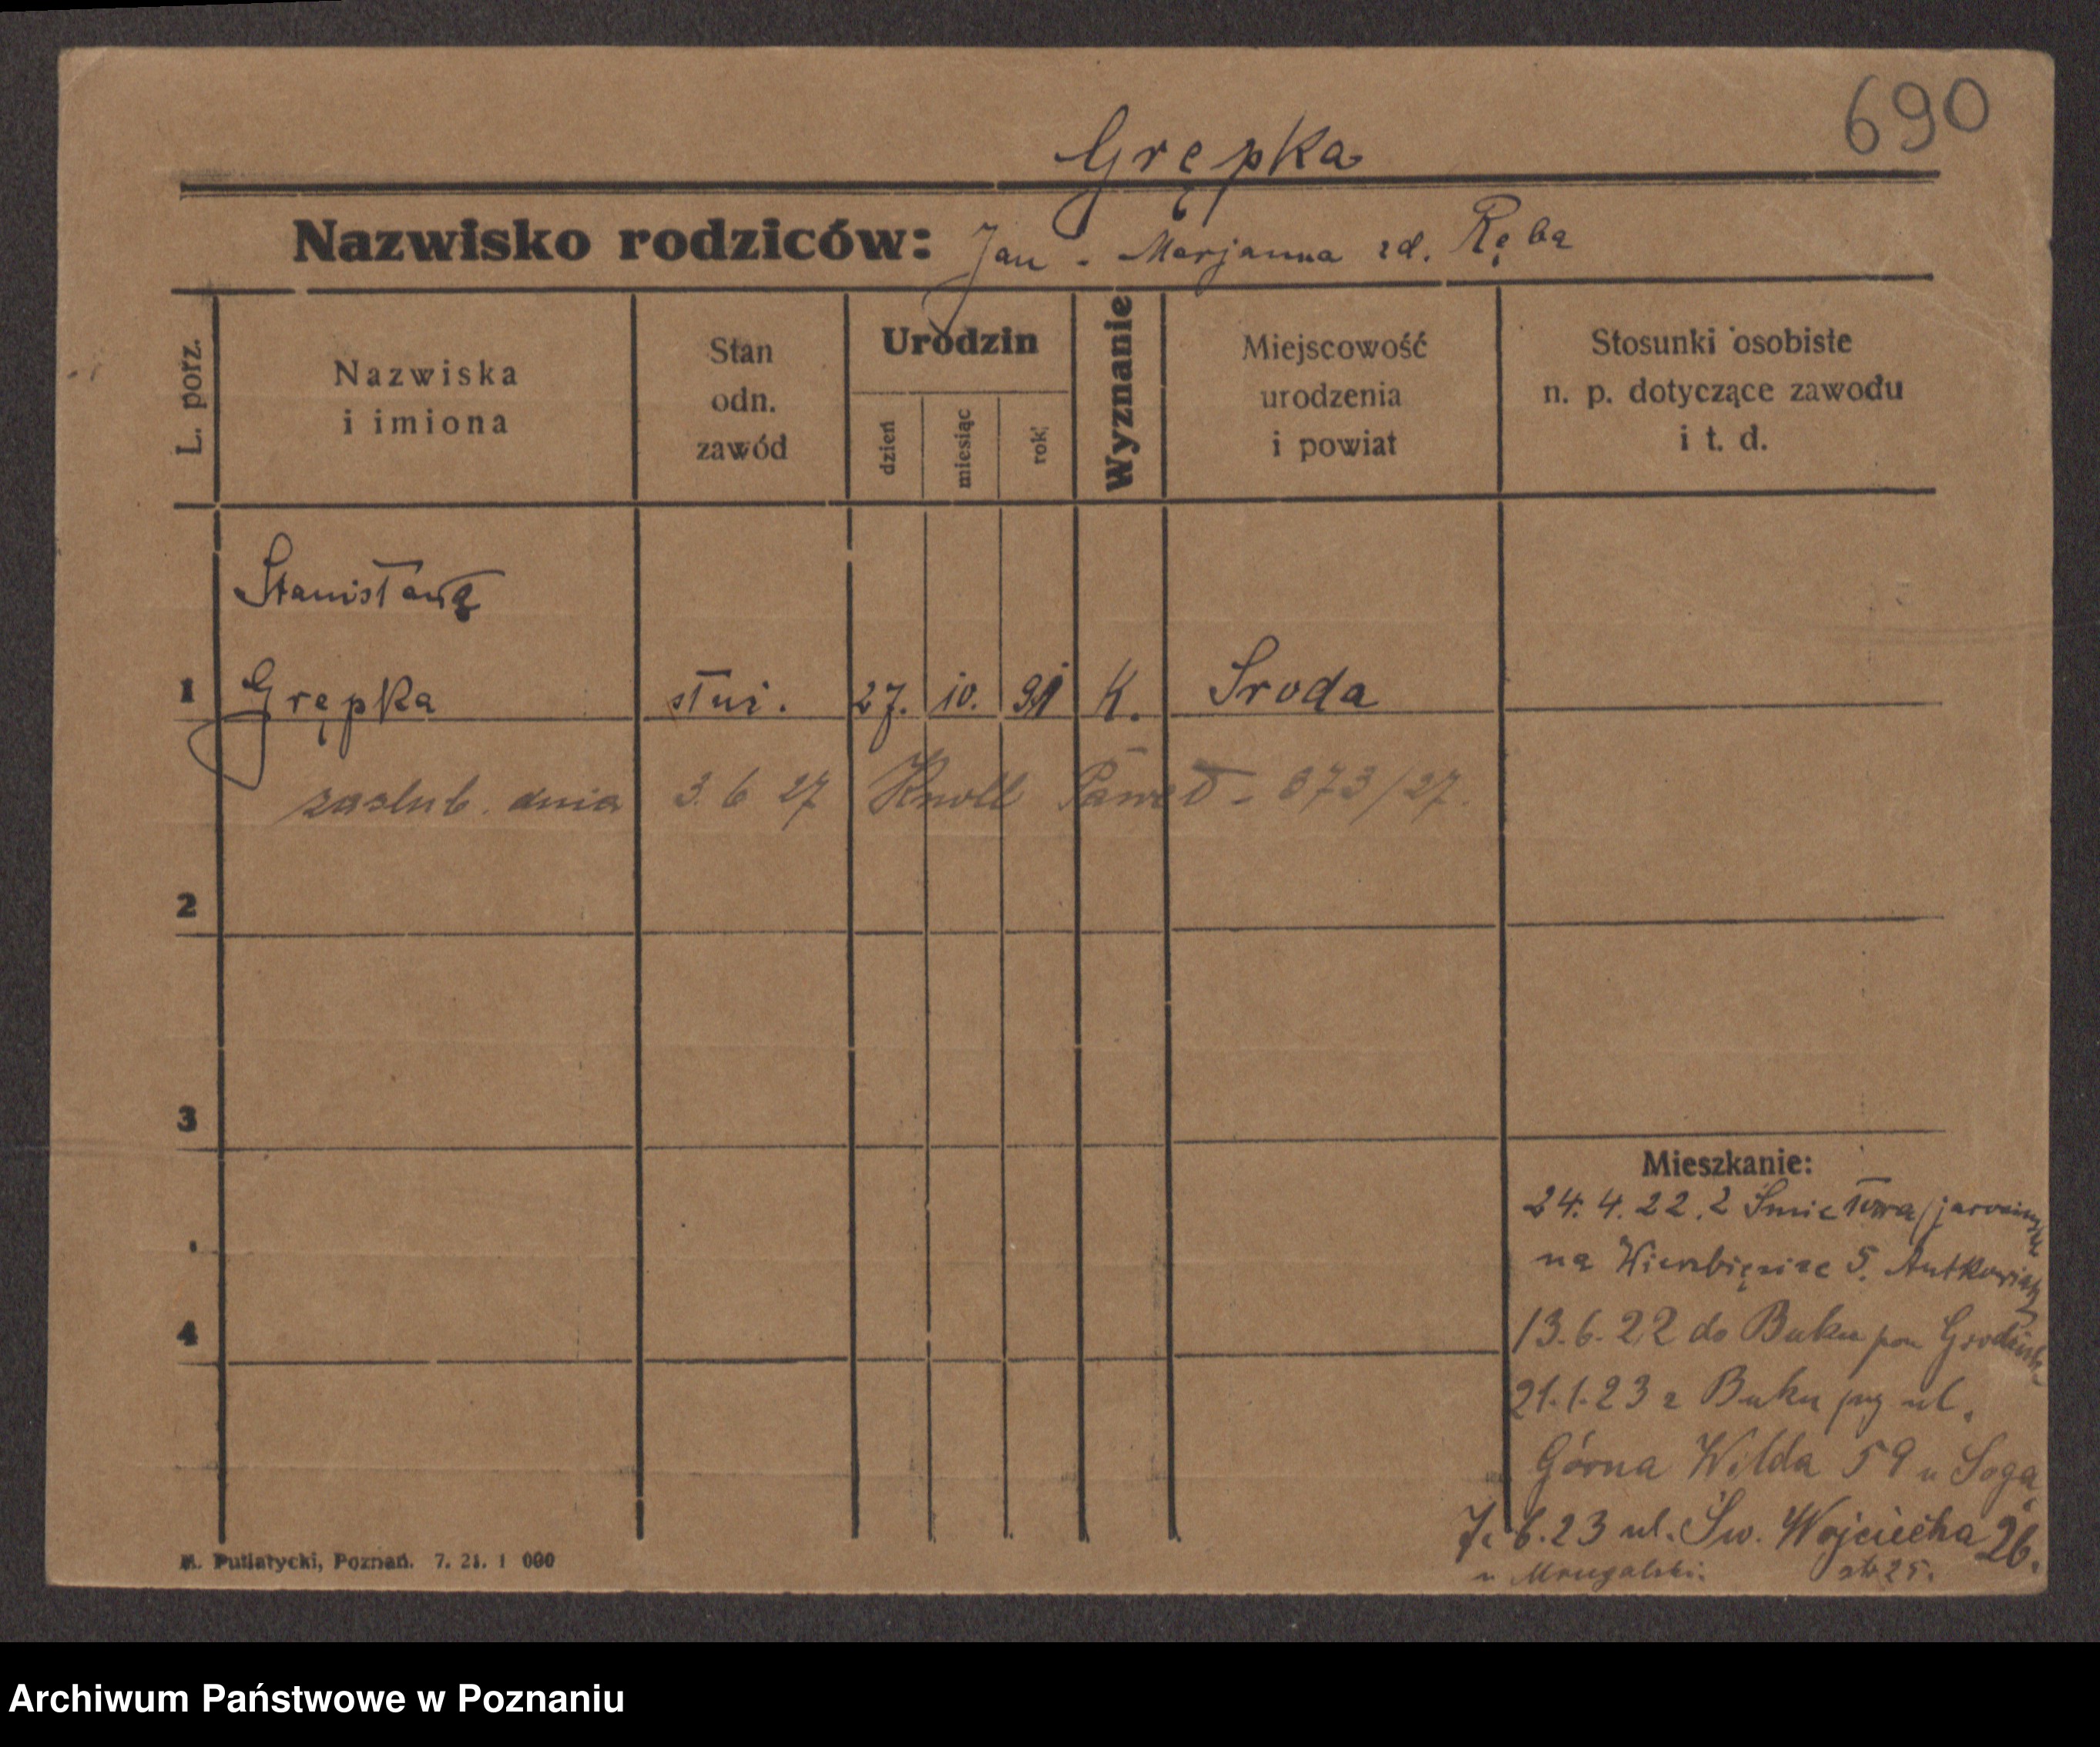 690
Grępka
Nazwisko rodziców: Jan - Marjanna zd. Ręba
L. porz.
Nazwiska
i imiona
Stan
odn.
zawód
Urodzin
dzień
miesiąc
rok
Wyznanie
Miejscowość
urodzenia
i powiat
Stosunki osobiste
n. p. dotyczące zawodu
i t. d.
Stanisława
1 Grępka służ. 27. 10. 91 K. Sroda
zaslub. dnia 3. 6 27 Knoll Paweł - 373/27.
2
3
Mieszkanie:
24. 4. 22. z Śmiełowa/
na Wierzbięcice 5.
4
13. 6. 22 do Buku pow
21. 1. 23 z Buku ul.
Górna Wilda 59 u
7. 6. 23 ul. Św. Wojciecha 26.
u Mrugalski. 25.
M. Putiatycki, Poznań. 7. 21. 1 000
Archiwum Państwowe w Poznaniu